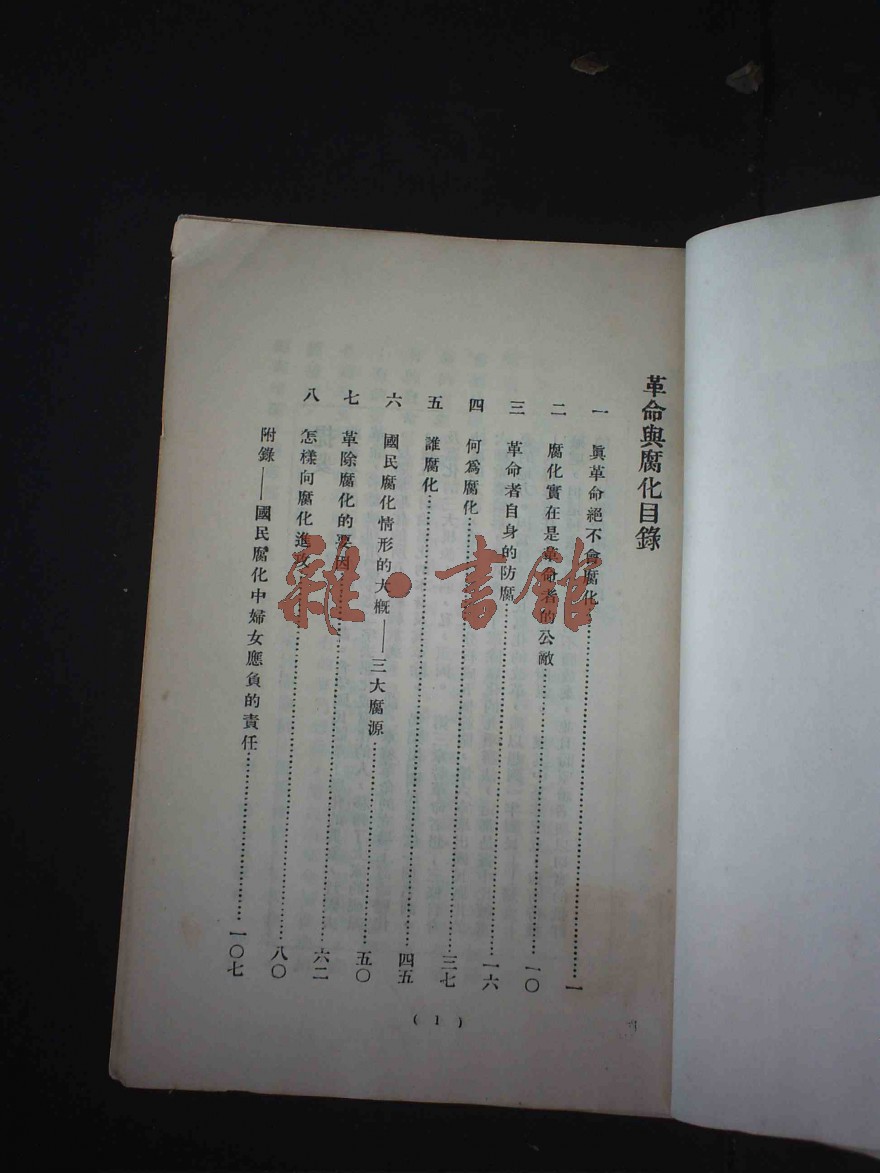 革命與腐化目錄
一 眞革命絕不會腐化……一
二 腐化實在是革命者的公敵……一〇
三 革命者自身的防腐……一六
四 何爲腐化……三七
五 誰腐化……四五
六 國民腐化情形的大概——三大腐源……五〇
七 革除腐化的要因……六二
八 怎樣向腐化進攻……八〇
附錄——國民腐化中婦女應負的責任……一〇七
(1)
雜·書館